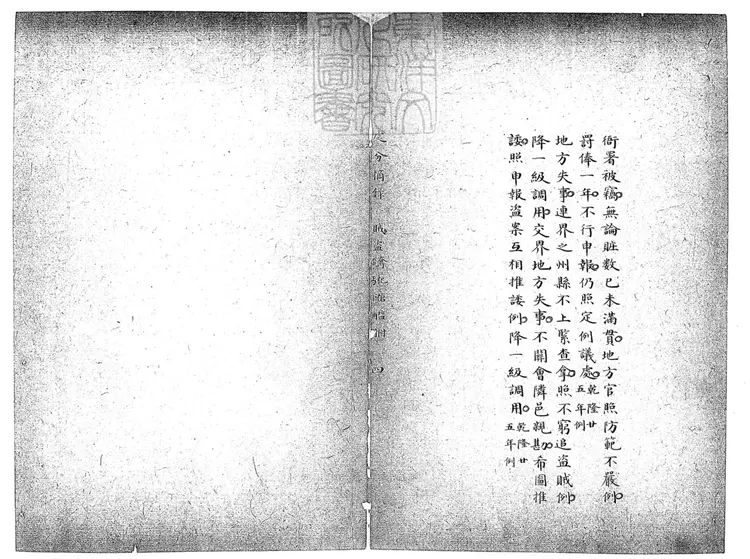 衙署被竊無論賍數已未滿貫地方官照防範不嚴例
罰俸一年不行申報仍照定例議處乾隆廿五年例
地方失事連界之州縣不上緊查拿照不窮追盜賊例
降一級調用交界地方失事不關會隣邑親勘希圖推
諉照申報盜案互相推諉例降一級調用乾隆廿五年例
東洋文
化研究
所圖書